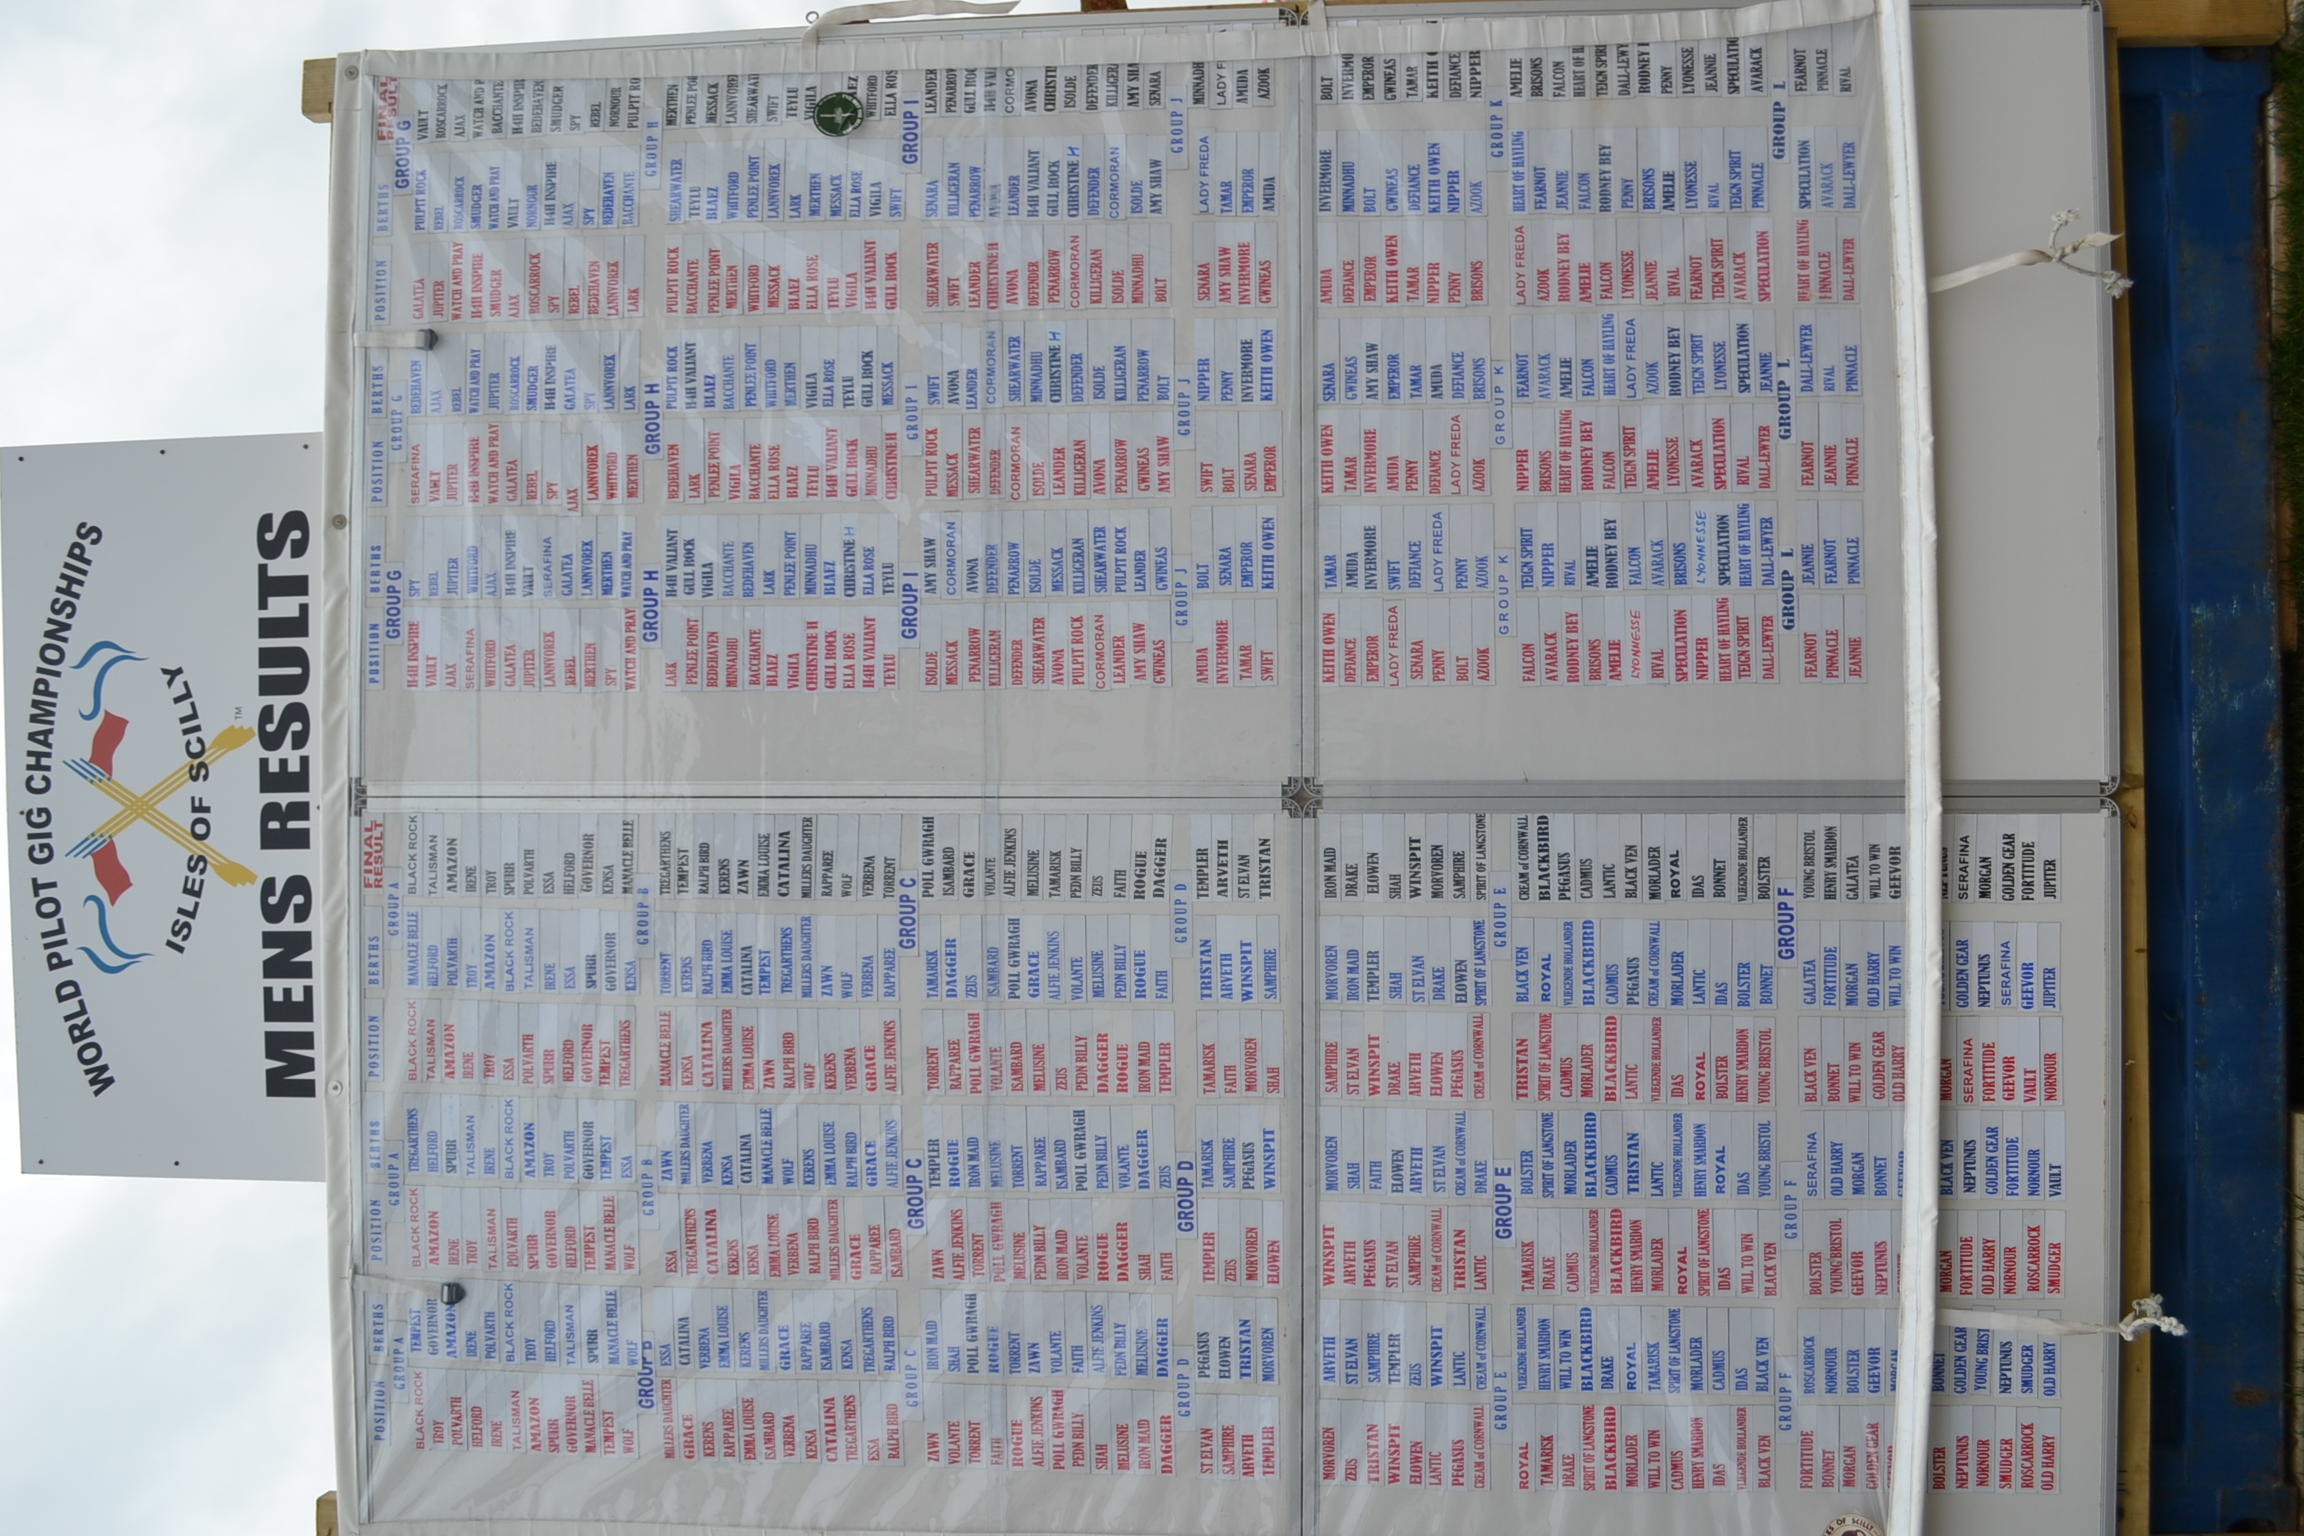 WORLD PILOT GIG CHAMPIONSHIPS
ISLES OF SCILLY
MENS RESULTS
POSITION
GROUP A
BLACK ROCK
TROY
POLVARTH
HELFORD
IRENE
TALISMAN
AMAZON
SPURR
GOVERNOR
MANACLE BELLE
TEMPEST
WOLF
GROUP B
MILLERS DAUGHTER
GRACE
KERENS
RAPPAREE
EMMA LOUISE
ISAMBARD
VERBENA
KENSA
CATALINA
TREGARTHENS
ESSA
RALPH BIRD
GROUP C
ZAWN
VOLANTE
TORRENT
FAITH
ROGUE
ALFIE JENKINS
POLL GWRAGH
PEDN BILLY
SHAH
MELUSINE
IRON MAID
DAGGER
GROUP D
ST ELVAN
SAMPHIRE
ARVETH
TEMPLER
MORVOREN
ZEUS
TRISTAN
WINSPIT
ELOWEN
LANTIC
PEGASUS
CREAM of CORNWALL
GROUP E
ROYAL
TAMARISK
DRAKE
SPIRIT OF LANGSTONE
BLACKBIRD
MORLADER
WILL TO WIN
CADMUS
HENRY SMARDON
IDAS
VLIEGENDE HOLLANDER
BLACK VEN
GROUP F
FORTITUDE
BONNET
MORGAN
GOLDEN GEAR
BOLSTER
NEPTUNUS
NORNOUR
SMUDGER
ROSCARROCK
OLD HARRY
BERTHS
TEMPEST
GOVERNOR
AMAZON
IRENE
POLVARTH
BLACK ROCK
TROY
HELFORD
TALISMAN
SPURR
MANACLE BELLE
WOLF
ESSA
CATALINA
VERBENA
EMMA LOUISE
KERENS
MILLERS DAUGHTER
GRACE
RAPPAREE
ISAMBARD
KENSA
TREGARTHENS
RALPH BIRD
IRON MAID
SHAH
POLL GWRAGH
ROGUE
TORRENT
ZAWN
VOLANTE
FAITH
ALFIE JENKINS
PEDN BILLY
MELUSINE
DAGGER
PEGASUS
ELOWEN
TRISTAN
MORVOREN
ARVETH
ST ELVAN
SAMPHIRE
TEMPLER
ZEUS
WINSPIT
LANTIC
CREAM of CORNWALL
VLIEGENDE HOLLANDER
HENRY SMARDON
WILL TO WIN
BLACKBIRD
DRAKE
ROYAL
TAMARISK
SPIRIT OF LANGSTONE
MORLADER
CADMUS
IDAS
BLACK VEN
ROSCARROCK
NORNOUR
BOLSTER
GEEVOR
MORGAN
BONNET
GOLDEN GEAR
YOUNG BRIST
NEPTUNUS
SMUDGER
OLD HARRY
POSITION
GROUP A
BLACK ROCK
AMAZON
IRENE
TROY
TALISMAN
POLVARTH
SPURR
GOVERNOR
HELFORD
TEMPEST
MANACLE BELLE
WOLF
GROUP B
ESSA
TREGARTHENS
CATALINA
KERENS
KENSA
EMMA LOUISE
VERBENA
RALPH BIRD
MILLERS DAUGHTER
GRACE
RAPPAREE
ISAMBARD
GROUP C
ZAWN
ALFIE JENKINS
TORRENT
POLL GWRAGH
MELUSINE
PEDN BILLY
IRON MAID
VOLANTE
ROGUE
DAGGER
SHAH
FAITH
GROUP D
TEMPLER
ZEUS
MORVOREN
ELOWEN
WINSPIT
ARVETH
PEGASUS
ST ELVAN
SAMPHIRE
CREAM of CORNWALL
TRISTAN
LANTIC
GROUP E
TAMARISK
DRAKE
CADMUS
VLIEGENDE HOLLANDER
BLACKBIRD
HENRY SMARDON
MORLADER
ROYAL
SPIRIT OF LANGSTONE
IDAS
WILL TO WIN
BLACK VEN
GROUP F
BOLSTER
YOUNG BRISTOL
GEEVOR
NEPTUNUS
MORGAN
FORTITUDE
OLD HARRY
NORNOUR
ROSCARROCK
SMUDGER
BERTHS
TREGARTHENS
HELFORD
SPURR
TALISMAN
IRENE
BLACK ROCK
AMAZON
TROY
POLVARTH
GOVERNOR
TEMPEST
ESSA
ZAWN
MILLERS DAUGHTER
VERBENA
KENSA
CATALINA
MANACLE BELLE
WOLF
KERENS
EMMA LOUISE
RALPH BIRD
GRACE
ALFIE JENKINS
TEMPLER
ROGUE
IRON MAID
MELUSINE
TORRENT
RAPPAREE
ISAMBARD
POLL GWRAGH
PEDN BILLY
VOLANTE
DAGGER
ZEUS
TAMARISK
SAMPHIRE
PEGASUS
WINSPIT
MORVOREN
SHAH
FAITH
ELOWEN
ARVETH
ST ELVAN
CREAM of CORNWALL
DRAKE
BOLSTER
SPIRIT OF LANGSTONE
MORLADER
BLACKBIRD
CADMUS
TRISTAN
LANTIC
VLIEGENDE HOLLANDER
HENRY SMARDON
ROYAL
IDAS
YOUNG BRISTOL
SERAFINA
OLD HARRY
MORGAN
BONNET
BLACK VEN
NEPTUNUS
GOLDEN GEAR
FORTITUDE
NORNOUR
VAULT
POSITION
GROUP A
BLACK ROCK
TALISMAN
AMAZON
IRENE
TROY
ESSA
POLVARTH
SPURR
HELFORD
GOVERNOR
TEMPEST
TREGARTHENS
GROUP B
MANACLE BELLE
KENSA
CATALINA
MILLERS DAUGHTER
EMMA LOUISE
ZAWN
RALPH BIRD
WOLF
KERENS
VERBENA
GRACE
ALFIE JENKINS
GROUP C
TORRENT
RAPPAREE
POLL GWRAGH
VOLANTE
ISAMBARD
MELUSINE
ZEUS
PEDN BILLY
DAGGER
ROGUE
IRON MAID
TEMPLER
GROUP D
TAMARISK
FAITH
MORVOREN
SHAH
SAMPHIRE
ST ELVAN
WINSPIT
DRAKE
ARVETH
ELOWEN
PEGASUS
CREAM of CORNWALL
GROUP E
TRISTAN
SPIRIT OF LANGSTONE
CADMUS
MORLADER
BLACKBIRD
LANTIC
VLIEGENDE HOLLANDER
IDAS
ROYAL
BOLSTER
HENRY SMARDON
YOUNG BRISTOL
GROUP F
BLACK VEN
BONNET
WILL TO WIN
GOLDEN GEAR
OLD HARRY
MORGAN
SERAFINA
FORTITUDE
GEEVOR
VAULT
NORNOUR
BERTHS
MANACLE BELLE
HELFORD
POLVARTH
TROY
AMAZON
BLACK ROCK
TALISMAN
IRENE
ESSA
SPURR
GOVERNOR
KENSA
TORRENT
KERENS
RALPH BIRD
EMMA LOUISE
CATALINA
TEMPEST
TREGARTHENS
MILLERS DAUGHTER
ZAWN
WOLF
VERBENA
RAPPAREE
TAMARISK
DAGGER
ZEUS
ISAMBARD
POLL GWRAGH
GRACE
ALFIE JENKINS
VOLANTE
MELUSINE
PEDN BILLY
ROGUE
FAITH
TRISTAN
ARVETH
WINSPIT
SAMPHIRE
MORVOREN
IRON MAID
TEMPLER
SHAH
ST ELVAN
DRAKE
ELOWEN
SPIRIT OF LANGSTONE
BLACK VEN
ROYAL
VLIEGENDE HOLLANDER
BLACKBIRD
CADMUS
PEGASUS
CREAM of CORNWALL
MORLADER
LANTIC
IDAS
BOLSTER
BONNET
GALATEA
FORTITUDE
MORGAN
OLD HARRY
WILL TO WIN
GOLDEN GEAR
NEPTUNUS
SERAFINA
GEEVOR
JUPITER
FINAL RESULT
BLACK ROCK
TALISMAN
AMAZON
IRENE
TROY
SPURR
POLVARTH
ESSA
HELFORD
GOVERNOR
KENSA
MANACLE BELLE
TREGARTHENS
TEMPEST
RALPH BIRD
KERENS
ZAWN
EMMA LOUISE
CATALINA
MILLERS DAUGHTER
RAPPAREE
WOLF
VERBENA
TORRENT
POLL GWRAGH
ISAMBARD
GRACE
VOLANTE
ALFIE JENKINS
MELUSINE
TAMARISK
PEDN BILLY
ZEUS
FAITH
ROGUE
DAGGER
TEMPLER
ARVETH
ST ELVAN
TRISTAN
IRON MAID
DRAKE
ELOWEN
SHAH
WINSPIT
MORVOREN
SAMPHIRE
SPIRIT OF LANGSTONE
CREAM of CORNWALL
BLACKBIRD
PEGASUS
CADMUS
LANTIC
BLACK VEN
MORLADER
ROYAL
IDAS
BONNET
VLIEGENDE HOLLANDER
BOLSTER
YOUNG BRISTOL
HENRY SMARDON
GALATEA
WILL TO WIN
GEEVOR
NEPTUNUS
SERAFINA
MORGAN
GOLDEN GEAR
FORTITUDE
JUPITER
POSITION
GROUP G
H4H INSPIRE
VAULT
AJAX
SERAFINA
WHITFORD
GALATEA
JUPITER
LANNVOREK
REBEL
MERTHEN
SPY
WATCH AND PRAY
GROUP H
LARK
PENLEE POINT
BEDEHAVEN
MINNADHU
BACCHANTE
BLAEZ
VIGILA
CHRISTINE H
GULL ROCK
ELLA ROSE
H4H VALIANT
TEYLU
GROUP I
ISOLDE
MESSACK
PENARROW
KILLIGERAN
DEFENDER
SHEARWATER
AVONA
PULPIT ROCK
CORMORAN
LEANDER
AMY SHAW
GWINEAS
GROUP J
AMUDA
INVERMORE
TAMAR
SWIFT
KEITH OWEN
DEFIANCE
EMPEROR
LADY FREDA
SENARA
PENNY
BOLT
AZOOK
GROUP K
FALCON
AVARACK
RODNEY BEY
BRISONS
AMELIE
LYONNESSE
RIVAL
SPECULATION
NIPPER
HEART OF HAYLING
TEIGN SPIRIT
DALL-LEWYER
GROUP L
FEARNOT
PINNACLE
JEANNIE
BERTHS
SPY
REBEL
JUPITER
WHITFORD
AJAX
H4H INSPIRE
VAULT
SERAFINA
GALATEA
LANNVOREK
MERTHEN
WATCH AND PRAY
H4H VALIANT
GULL ROCK
VIGILA
BACCHANTE
BEDEHAVEN
LARK
PENLEE POINT
MINNADHU
BLAEZ
CHRISTINE H
ELLA ROSE
TEYLU
AMY SHAW
CORMORAN
AVONA
DEFENDER
PENARROW
ISOLDE
MESSACK
KILLIGERAN
SHEARWATER
PULPIT ROCK
LEANDER
GWINEAS
BOLT
SENARA
EMPEROR
KEITH OWEN
TAMAR
AMUDA
INVERMORE
SWIFT
DEFIANCE
LADY FREDA
PENNY
AZOOK
TEIGN SPIRIT
NIPPER
RIVAL
AMELIE
RODNEY BEY
FALCON
AVARACK
BRISONS
LYONNESSE
SPECULATION
HEART OF HAYLING
DALL-LEWYER
JEANNIE
FEARNOT
PINNACLE
POSITION
GROUP G
SERAFINA
VAULT
JUPITER
H4H INSPIRE
WATCH AND PRAY
GALATEA
REBEL
SPY
AJAX
LANNVOREK
WHITFORD
MERTHEN
GROUP H
BEDEHAVEN
LARK
PENLEE POINT
VIGILA
BACCHANTE
ELLA ROSE
BLAEZ
TEYLU
H4H VALIANT
GULL ROCK
MINNADHU
CHRISTINE H
GROUP I
PULPIT ROCK
MESSACK
SHEARWATER
DEFENDER
CORMORAN
ISOLDE
LEANDER
KILLIGERAN
AVONA
PENARROW
GWINEAS
AMY SHAW
GROUP J
SWIFT
BOLT
SENARA
EMPEROR
KEITH OWEN
TAMAR
INVERMORE
AMUDA
PENNY
DEFIANCE
LADY FREDA
AZOOK
GROUP K
NIPPER
BRISONS
HEART OF HAYLING
RODNEY BEY
FALCON
TEIGN SPIRIT
AMELIE
LYONESSE
AVARACK
SPECULATION
RIVAL
DALL-LEWYER
GROUP L
FEARNOT
JEANNIE
PINNACLE
BERTHS
BEDEHAVEN
AJAX
REBEL
WATCH AND PRAY
JUPITER
ROSCARROCK
SMUDGER
H4H INSPIRE
GALATEA
SPY
LANNVOREK
LARK
PULPIT ROCK
H4H VALIANT
BLAEZ
BACCHANTE
PENLEE POINT
WHITFORD
MERTHEN
VIGILA
ELLA ROSE
TEYLU
GULL ROCK
MESSACK
SWIFT
AVONA
LEANDER
CORMORAN
SHEARWATER
MINNADHU
CHRISTINE H
DEFENDER
ISOLDE
KILLIGERAN
PENARROW
BOLT
NIPPER
PENNY
INVERMORE
KEITH OWEN
SENARA
GWINEAS
AMY SHAW
EMPEROR
TAMAR
AMUDA
DEFIANCE
BRISONS
FEARNOT
AVARACK
AMELIE
FALCON
HEART OF HAYLING
LADY FREDA
AZOOK
RODNEY BEY
TEIGN SPIRIT
LYONESSE
SPECULATION
JEANNIE
DALL-LEWYER
RIVAL
PINNACLE
POSITION
GALATEA
JUPITER
WATCH AND PRAY
H4H INSPIRE
SMUDGER
AJAX
ROSCARROCK
SPY
REBEL
BEDEHAVEN
LANNVOREK
LARK
PULPIT ROCK
BACCHANTE
PENLEE POINT
MERTHEN
WHITFORD
MESSACK
BLAEZ
ELLA ROSE
TEYLU
VIGILA
H4H VALIANT
GULL ROCK
SHEARWATER
SWIFT
LEANDER
CHRISTINE H
AVONA
DEFENDER
PENARROW
CORMORAN
KILLIGERAN
ISOLDE
MINNADHU
BOLT
SENARA
AMY SHAW
INVERMORE
GWINEAS
AMUDA
DEFIANCE
EMPEROR
KEITH OWEN
TAMAR
NIPPER
PENNY
BRISONS
LADY FREDA
AZOOK
RODNEY BEY
AMELIE
FALCON
LYONESSE
JEANNIE
RIVAL
FEARNOT
TEIGN SPIRIT
AVARACK
SPECULATION
HEART OF HAYLING
PINNACLE
DALL-LEWYER
BERTHS
GROUP G
PULPIT ROCK
REBEL
ROSCARROCK
SMUDGER
WATCH AND PRAY
VAULT
NORNOUR
H4H INSPIRE
AJAX
SPY
BEDEHAVEN
BACCHANTE
GROUP H
SHEARWATER
TEYLU
BLAEZ
WHITFORD
PENLEE POINT
LANNVOREK
LARK
MERTHEN
MESSACK
ELLA ROSE
VIGILA
SWIFT
GROUP I
SENARA
KILLIGERAN
PENARROW
AVONA
LEANDER
H4H VALIANT
GULL ROCK
CHRISTINE H
DEFENDER
CORMORAN
ISOLDE
AMY SHAW
GROUP J
LADY FREDA
TAMAR
EMPEROR
AMUDA
INVERMORE
MINNADHU
BOLT
GWINEAS
DEFIANCE
KEITH OWEN
NIPPER
AZOOK
GROUP K
HEART OF HAYLING
FEARNOT
JEANNIE
FALCON
RODNEY BEY
PENNY
BRISONS
AMELIE
LYONESSE
RIVAL
TEIGN SPIRIT
PINNACLE
GROUP L
SPECULATION
AVARACK
DALL-LEWYER
FINAL RESULT
VAULT
ROSCARROCK
AJAX
WATCH AND P
BACCHANTE
H4H INSPIR
BEDEHAVEN
SMUDGER
SPY
REBEL
NORNOUR
PULPIT RO
MERTHEN
PENLEE POI
MESSACK
LANNVORE
SHEARWAT
SWIFT
TEYLU
VIGILA
AEZ
WHITFORD
ELLA ROS
LEANDER
PENARROW
GULL ROC
H4H VAL
CORMO
AVONA
CHRISTI
ISOLDE
DEFENDER
KILLIGERA
AMY SHA
SENARA
MINNADH
LADY F
AMUDA
AZOOK
BOLT
INVERMO
EMPEROR
GWINEAS
TAMAR
KEITH
DEFIANCE
NIPPER
AMELIE
BRISONS
FALCON
HEART OF
TEIGN SPIR
DALL-LEWY
RODNEY
PENNY
LYONESSE
JEANNIE
SPECULATIO
AVARACK
FEARNOT
PINNACLE
RIVAL